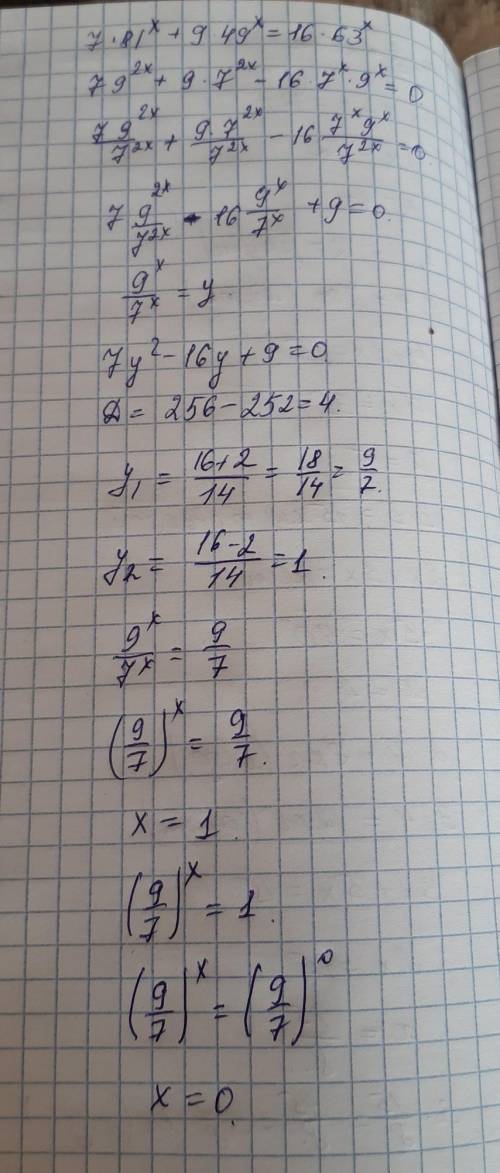 7·81^x + 9·49^x = 16·63^x
7 9^2x + 9·7^2x - 16·7^x·9^x = 0
7 9^2x/7^2x + 9·7^2x/7^2x - 16 7^x 9^x/7^2x = 0
7 9^2x/7^2x - 16 9^x/7^x + 9 = 0.
9^x/7^x = y.
7y² - 16y + 9 = 0.
D = 256 - 252 = 4.
y₁ = (16+2)/14 = 18/14 = 9/7.
y₂ = (16-2)/14 = 1.
9^x/7^x = 9/7
(9/7)^x = 9/7.
x = 1.
(9/7)^x = 1.
(9/7)^x = (9/7)^0
x = 0.